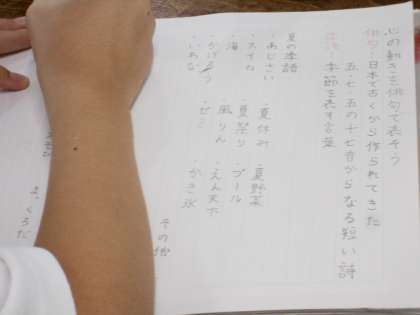 心の動きを俳句で表そう
俳句・日本で古くから作られてきた
五・七・五の十七音からなる短い詩
季語・季節を表す言葉
夏の季語
・あじさい
・スイカ
・海
・かげろう
・夏休み
・夏祭り
・風りん
・ゼミ
・夏野菜
・プール
・えん天下
・かき氷
その他